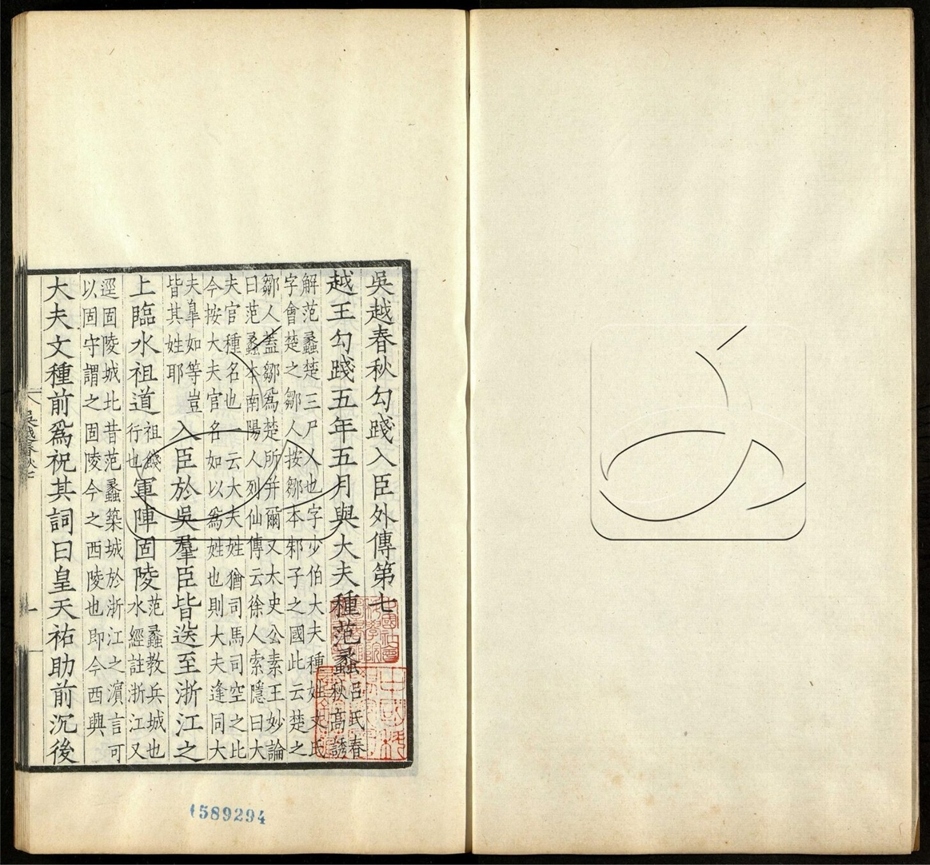 吳越春秋勾踐入臣外傳第七
越王勾踐五年五月與大夫種范蠡呂氏春秋高誘
解范蠡楚三戶人也字少伯大夫種姓文氏
字會楚之鄒人按鄒本邾子之國此云楚之
鄒人蓋鄒爲楚所并爾又太史公素王妙論
曰范蠡本南陽人列仙傳云徐人索隱曰大
夫官種名也一云大夫姓猶司馬司空之比
今按大夫官名如以爲姓也則大夫逢同大
夫皐如等豈
皆其姓耶入臣於吳羣臣皆送至浙江之
上臨水祖道祖餞行也軍陣固陵范蠡教兵城也水經註浙江又
逕固陵城北昔范蠡築城於浙江之濱言可
以固守謂之固陵今之西陵也即今西興
大夫文種前爲祝其詞曰皇天祐助前沉後
吳越春秋七
一
1589294